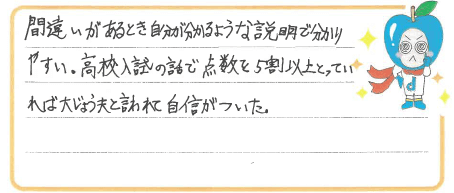 間違いがあるとき自分が分かるような説明で分かり
やすい。高校入試の話で点数を5割以上とってい
れば大じょう夫と言われて自信がついた。
d